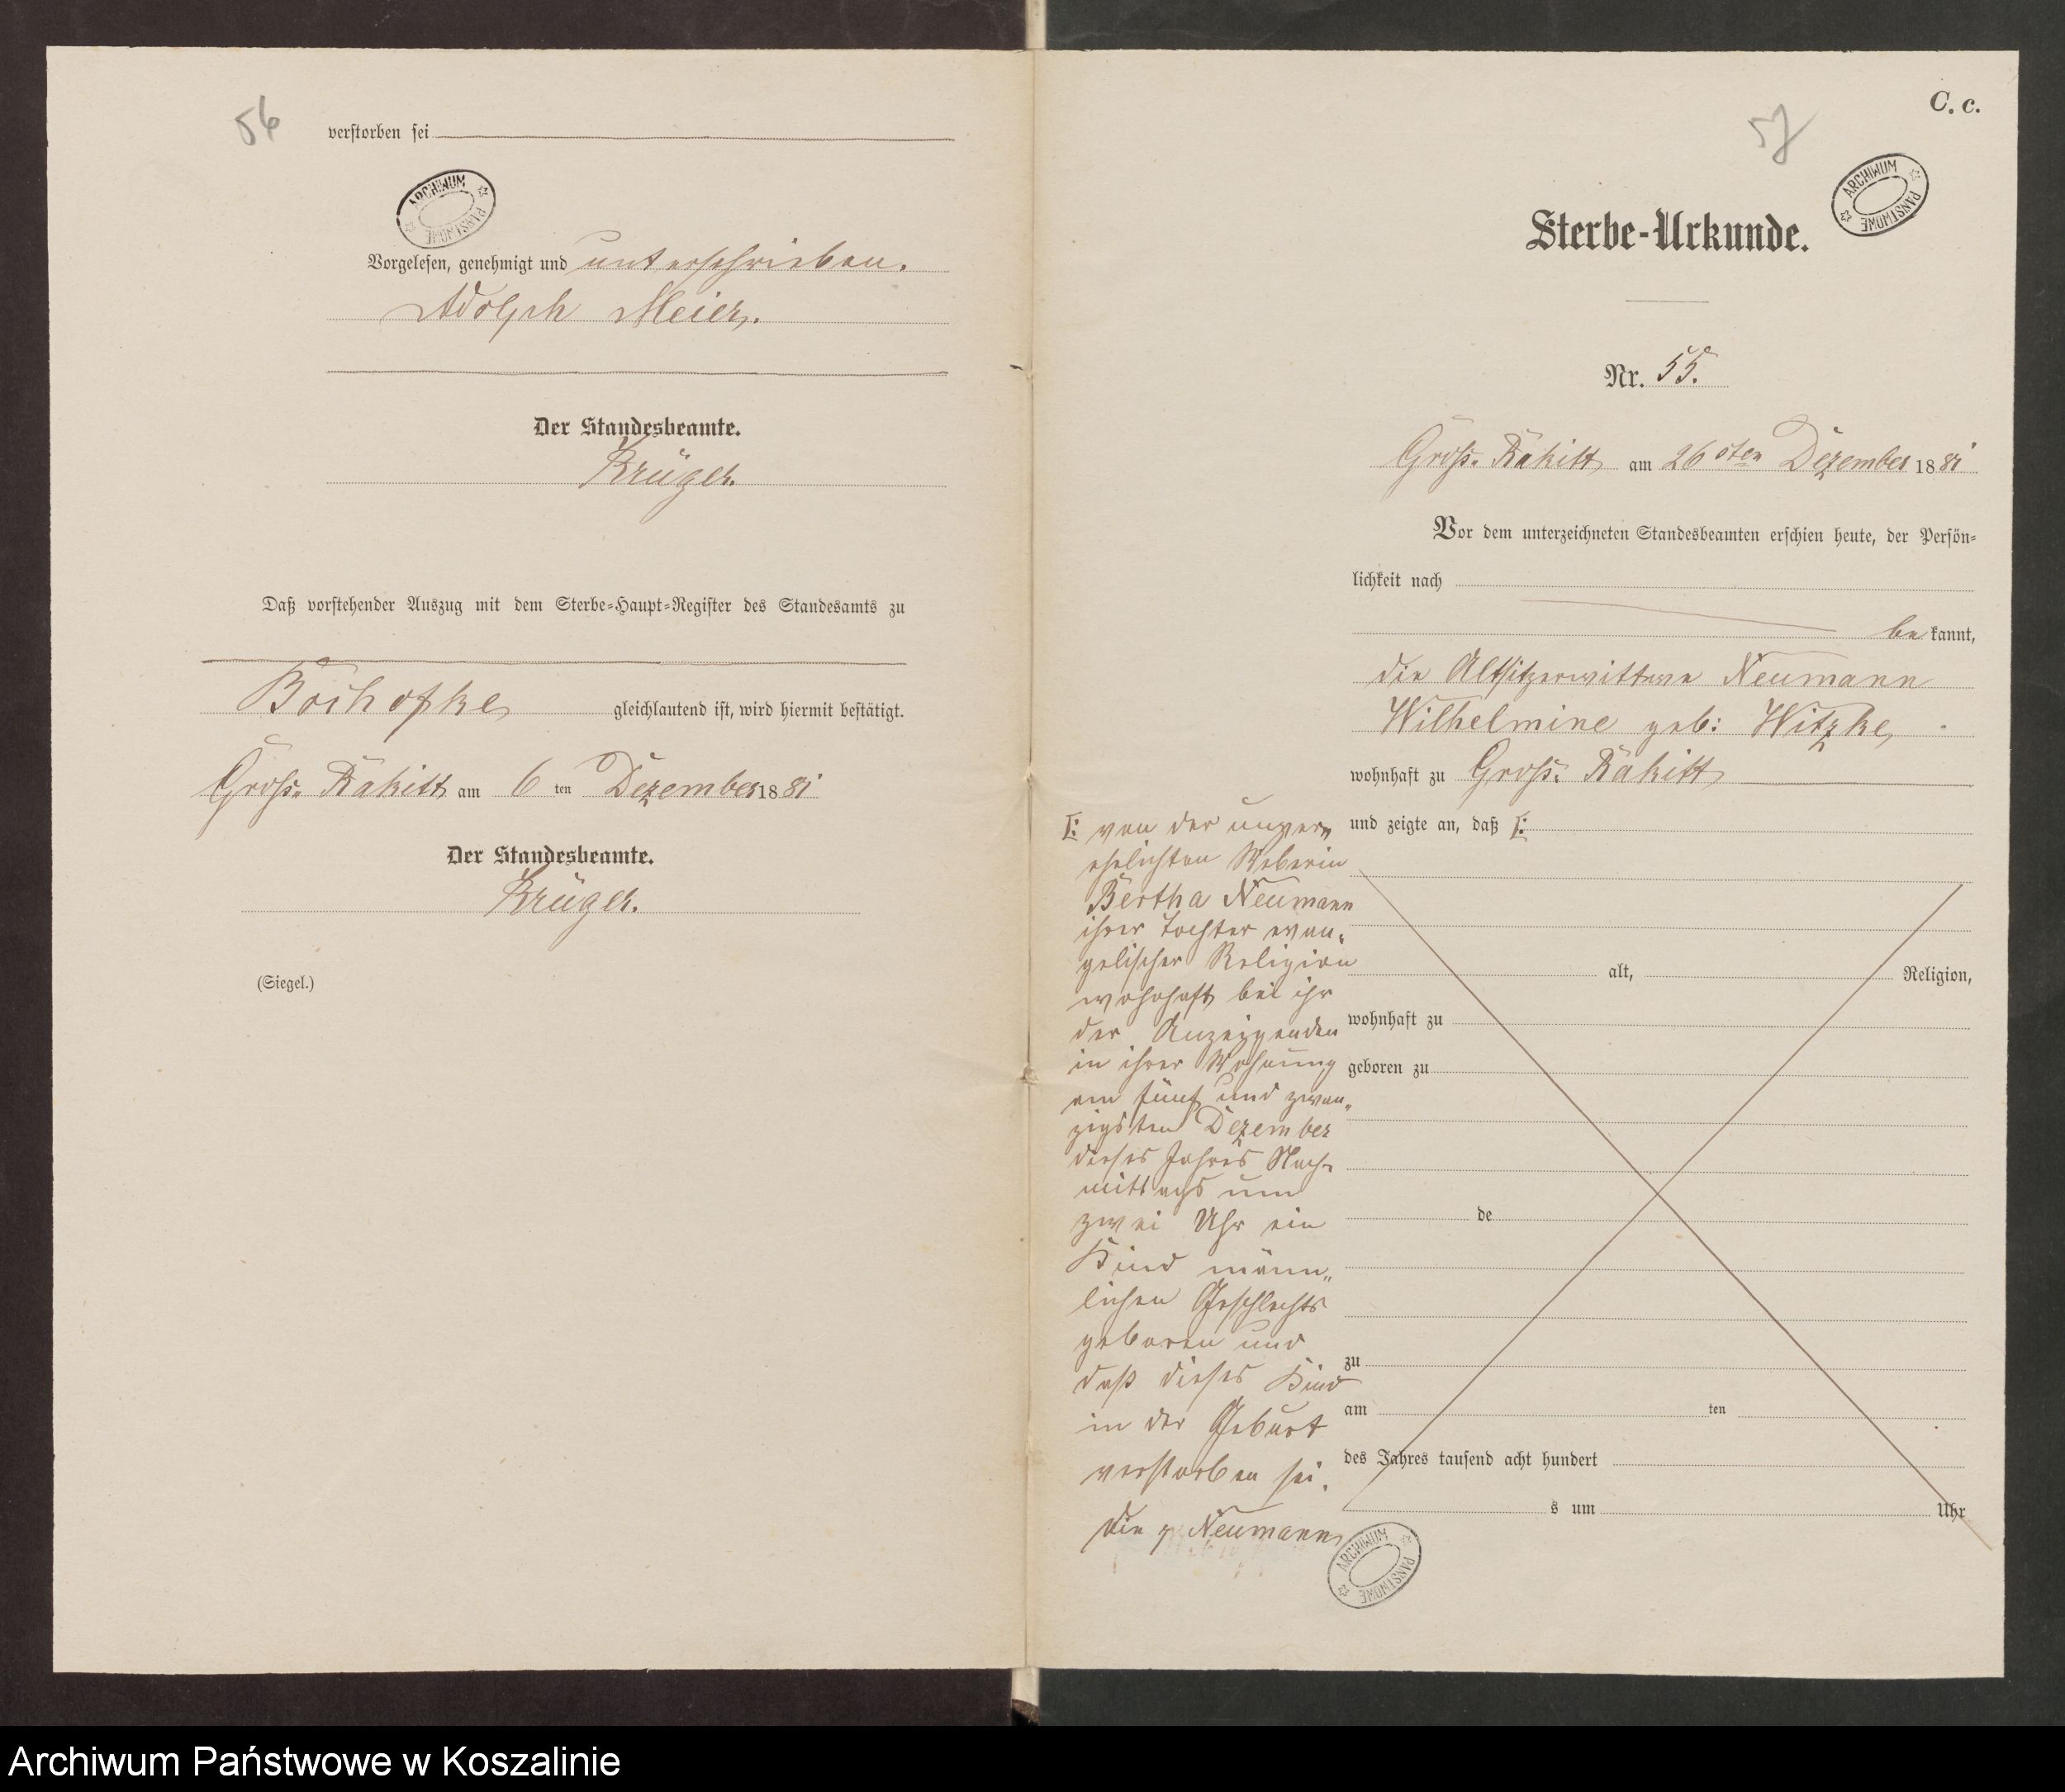 56
verstorben sei
ARCHIWUM PAŃSTWOWE
Vorgelesen, genehmigt und unterschrieben.
Adolph Meier.
Der Standesbeamte.
Krüger.
Daß vorstehender Auszug mit dem Sterbe-Haupt-Register des Standesamts zu
gleichlautend ist, wird hiermit bestätigt.
Groß. Rakitt am 6 ten Dezember 1881
Der Standesbeamte.
Krüger.
(Siegel.)
C. c.
57
ARCHIWUM PAŃSTWOWE
Sterbe-Urkunde.
Nr. 55.
Groß. Rakitt am 26 sten Dezember 1881
Vor dem unterzeichneten Standesbeamten erschien heute, der Persön-
lichkeit nach
bekannt,
die Altsitzerwittwe Neumann
Wilhelmine geb: Witzke,
wohnhaft zu Groß. Rakitt
und zeigte an, daß [:
[: von der unver„
ehelichten Weberin
Bertha Neumann
ihrer Tochter evan„
gelischer Religion
wohnhaft bei ihr
der Anzeigenden
in ihrer Wohnung
am fünf und zwan„
zigsten Dezember
dieses Jahres Nach„
mittags um
zwei Uhr ein
Kind männ„
lichen Geschlechts
geboren und
daß dieses Kind
in der Geburt
verstorben sei.
die p Neumann
alt, Religion,
wohnhaft zu
geboren zu
de
zu
am ten
des Jahres tausend acht hundert
s um Uhr
ARCHIWUM PAŃSTWOWE
Archiwum Państwowe w Koszalinie